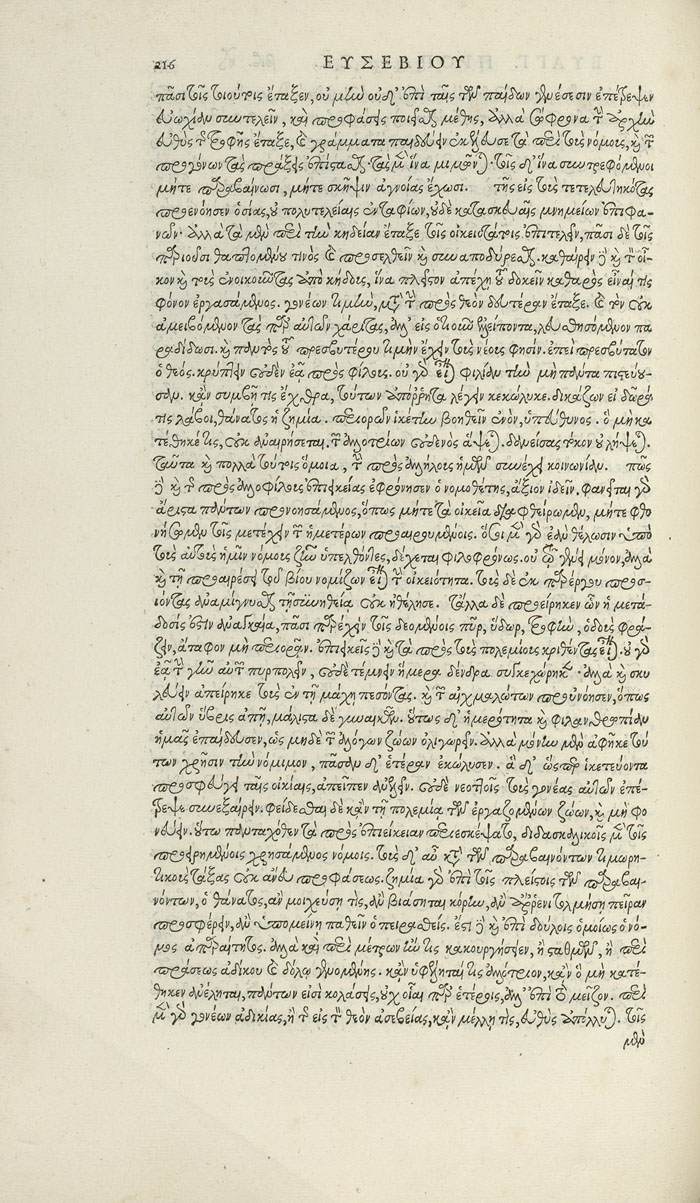 216 ΕΥΣΕΒΙΟΥ
πᾶσι τοῖς τοιούτοις ἔταξεν, οὐ μὴν οὐδ' ἐπὶ ταῖς τῶν παίδων γενέσεσιν ἐπέτρεψεν
εὐωχίαν συντελεῖν, καὶ προφάσεις ποιεῖσθαι μέθης, ἀλλὰ σώφρονα τὴν ἀρχὴν
εὐθὺς τῆς τροφῆς ἔταξε, καὶ γράμματα παιδεύειν ἐκέλευσε τὰ περὶ τοὺς νόμους, καὶ τῶν
προγόνων τὰς πράξεις ἐπίστασθαι. τὰς μὲν ἵνα μιμῶνται. τοῖς δ' ἵνα συντρεφόμενοι
μήτε παραβαίνωσι, μήτε σκῆψιν ἀγνοίας ἔχωσι. τῆς εἰς τοὺς τετελευτηκότας
προενόησεν ὁσίας, οὐ πολυτελείαις ἐνταφίων, οὐδὲ κατασκευαῖς μνημείων ἐπιφα-
νῶν. ἀλλὰ τὰ μὲν περὶ τὴν κηδείαν ἔταξε τοῖς οἰκειοτάτοις ἐπιτελεῖν, πᾶσι δὲ τοῖς
παριοῦσι θαπτομένου τινὸς καὶ προσελθεῖν καὶ συναποδύρεσθαι. καθαίρειν δὲ καὶ τὸν οἶ-
κον καὶ τοὺς ἐνοικοῦντας ἀπὸ κήδους, ἵνα πλεῖστον ἀπέχῃ τοῦ δοκεῖν καθαρὸς εἶναί τις
φόνον ἐργασάμενος. γονέων τιμὴν, μετὰ τὴν πρὸς θεὸν δευτέραν ἔταξε. καὶ τὸν οὐκ
ἀμειβόμενον τὰς παρ' αὐτῶν χάριτας, ἀλλ' εἰς ὁτιοῦν ἐλλείποντα, λευσθησόμενον πα
ραδίδωσι. καὶ παντὸς τοῦ πρεσβυτέρου τιμὴν ἔχειν τοὺς νέους φησίν. ἐπεὶ πρεσβύτατον
ὁ θεός. κρύπτειν οὐδὲν ἐᾷ πρὸς φίλους. οὐ γὰρ εἶναι φιλίαν τὴν μὴ πάντα πιστεύου-
σαν. κἂν συμβῇ τις ἔχθρα, τούτων ἀπόρρητα λέγειν κεκώλυκε. δικάζων εἰ δῶρά
τις λάβοι, θάνατος ἡ ζημία. περιορῶν ἱκέτην βοηθεῖν ἐνὸν, ὑπεύθυνος. ὃ μὴ κα
τέθηκέ τις, οὐκ ἀναιρήσεται. τῶν ἀλλοτρίων οὐδενὸς ἅψεται. δανείσας τόκον οὐ λήψεται.
ταῦτα καὶ πολλὰ τούτοις ὅμοια, τὴν πρὸς ἀλλήλους ἡμῶν συνέχει κοινωνίαν. πῶς
δὲ καὶ τῆς πρὸς ἀλλοφύλους ἐπιεικείας ἐφρόνησεν ὁ νομοθέτης, ἄξιον ἰδεῖν. φανεῖται γὰρ
ἄριστα πάντων προνοησάμενος, ὅπως μήτε τὰ οἰκεῖα διαφθείρωμεν, μήτε φθο
νήσωμεν τοῖς μετέχειν τῶν ἡμετέρων προαιρουμένοις. ὅσοι μὲν γὰρ ἐὰν θέλωσιν ὑπὸ
τοὺς αὐτοὺς ἡμῖν νόμους ζῆν ὑπελθόντες, δέχεται φιλοφρόνως. οὐ τῷ γένει μόνον, ἀλλὰ
καὶ τῇ προαιρέσει τοῦ βίου νομίζων εἶναι τὴν οἰκειότητα. τοὺς δὲ ἐκ παρέργου προσ-
ιόντας ἀναμίγνυσθαι τῇ συνηθείᾳ οὐκ ἠθέλησε. τἄλλα δὲ προείρηκεν ὧν ἡ μετά-
δοσις ἐστὶν ἀναγκαία, πᾶσι παρέχειν τοῖς δεομένοις πῦρ, ὕδωρ, τροφὴν, ὁδοὺς φρά-
ζειν, ἄταφον μὴ περιορᾶν. ἐπιεικεῖς δὲ καὶ τὰ πρὸς τοὺς πολεμίους κριθέντας εἶναι. οὐ γὰρ
ἐᾷ τὴν γῆν αὐτῶν πυρπολεῖν, οὐδὲ τέμνειν ἥμερα δένδρα συγκεχώρηκεν. ἀλλὰ καὶ σκυ
λεύειν ἀπείρηκε τοὺς ἐν τῇ μάχῃ πεσόντας. καὶ τῶν αἰχμαλώτων προὐνόησεν, ὅπως
αὐτῶν ὕβρις ἀπῇ, μάλιστα δὲ γυναικῶν. οὕτως δ' ἡμερότητα καὶ φιλανθρωπίαν
ἡμᾶς ἐπαίδευσεν, ὡς μηδὲ τῶν ἀλόγων ζώων ὀλιγωρεῖν. ἀλλὰ μόνην μὲν ἀφῆκε τού
των χρῆσιν τὴν νόμιμον, πᾶσαν δ' ἑτέραν ἐκώλυσεν. ἃ δ' ὥσπερ ἱκετεύοντα
προσφεύγει ταῖς οἰκίαις, ἀπεῖπεν ἀνελεῖν. οὐδὲ νεοττοῖς τοὺς γονέας αὐτῶν ἐπέ-
τρεψε συνεξαιρεῖν. φείδεσθαι δὲ κἂν τῇ πολεμίᾳ τῶν ἐργαζομένων ζώων, καὶ μὴ φο
νεύειν. οὕτω πανταχόθεν τὰ πρὸς ἐπιείκειαν περιεσκέψατο, διδασκαλικοῖς μὲν τοῖς
προειρημένοις χρησάμενος νόμοις. τοὺς δ' αὖ κατὰ τῶν παραβαινόντων τιμωρη-
τικοὺς τάξας οὐκ ἄνευ προφάσεως. ζημία γὰρ ἐπὶ τοῖς πλείστοις τῶν παραβαι-
νόντων, ὁ θάνατος, ἂν μοιχεύσῃ τις, ἂν βιάσηται κόρην, ἂν ἄρρενι τολμήσῃ πεῖραν
προσφέρειν, ἂν ὑπομείνῃ παθεῖν ὁ πειρασθείς. ἔστι δὲ καὶ ἐπὶ δούλοις ὁμοίως ὁ νό-
μος ἀπαραίτητος. ἀλλὰ καὶ περὶ μέτρων ἤν τις κακουργήσειεν, ἢ σταθμῶν, ἢ περὶ
πράσεως ἀδίκου καὶ δόλῳ γενομένης. κἂν ὑφέληταί τις ἀλλότριον, κἂν ὃ μὴ κατέ-
θηκεν ἀνέληται, πάντων εἰσὶ κολάσεις, οὐχ οἷαι παρ' ἑτέροις, ἀλλ' ἐπὶ τὸ μεῖζον. περὶ
μὲν γὰρ γονέων ἀδικίας, ἢ τῆς εἰς τὸν θεὸν ἀσεβείας, κἂν μέλλῃ τις, εὐθὺς ἀπόλλυται. τοῖς
μὲν